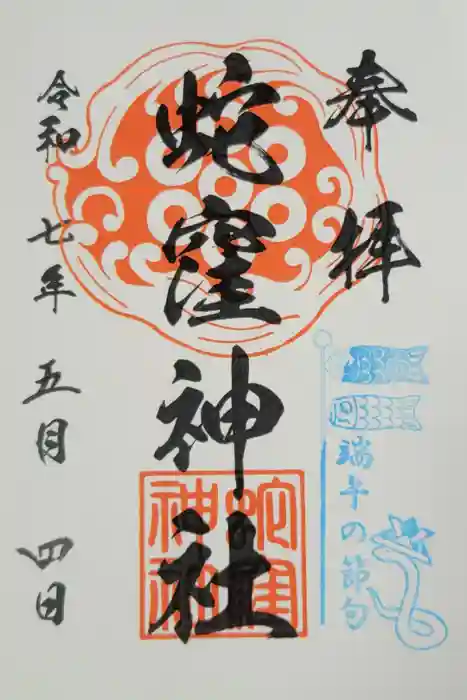 奉拝
蛇窪神社
令和七年五月四日
端午の節句
蛇窪神社